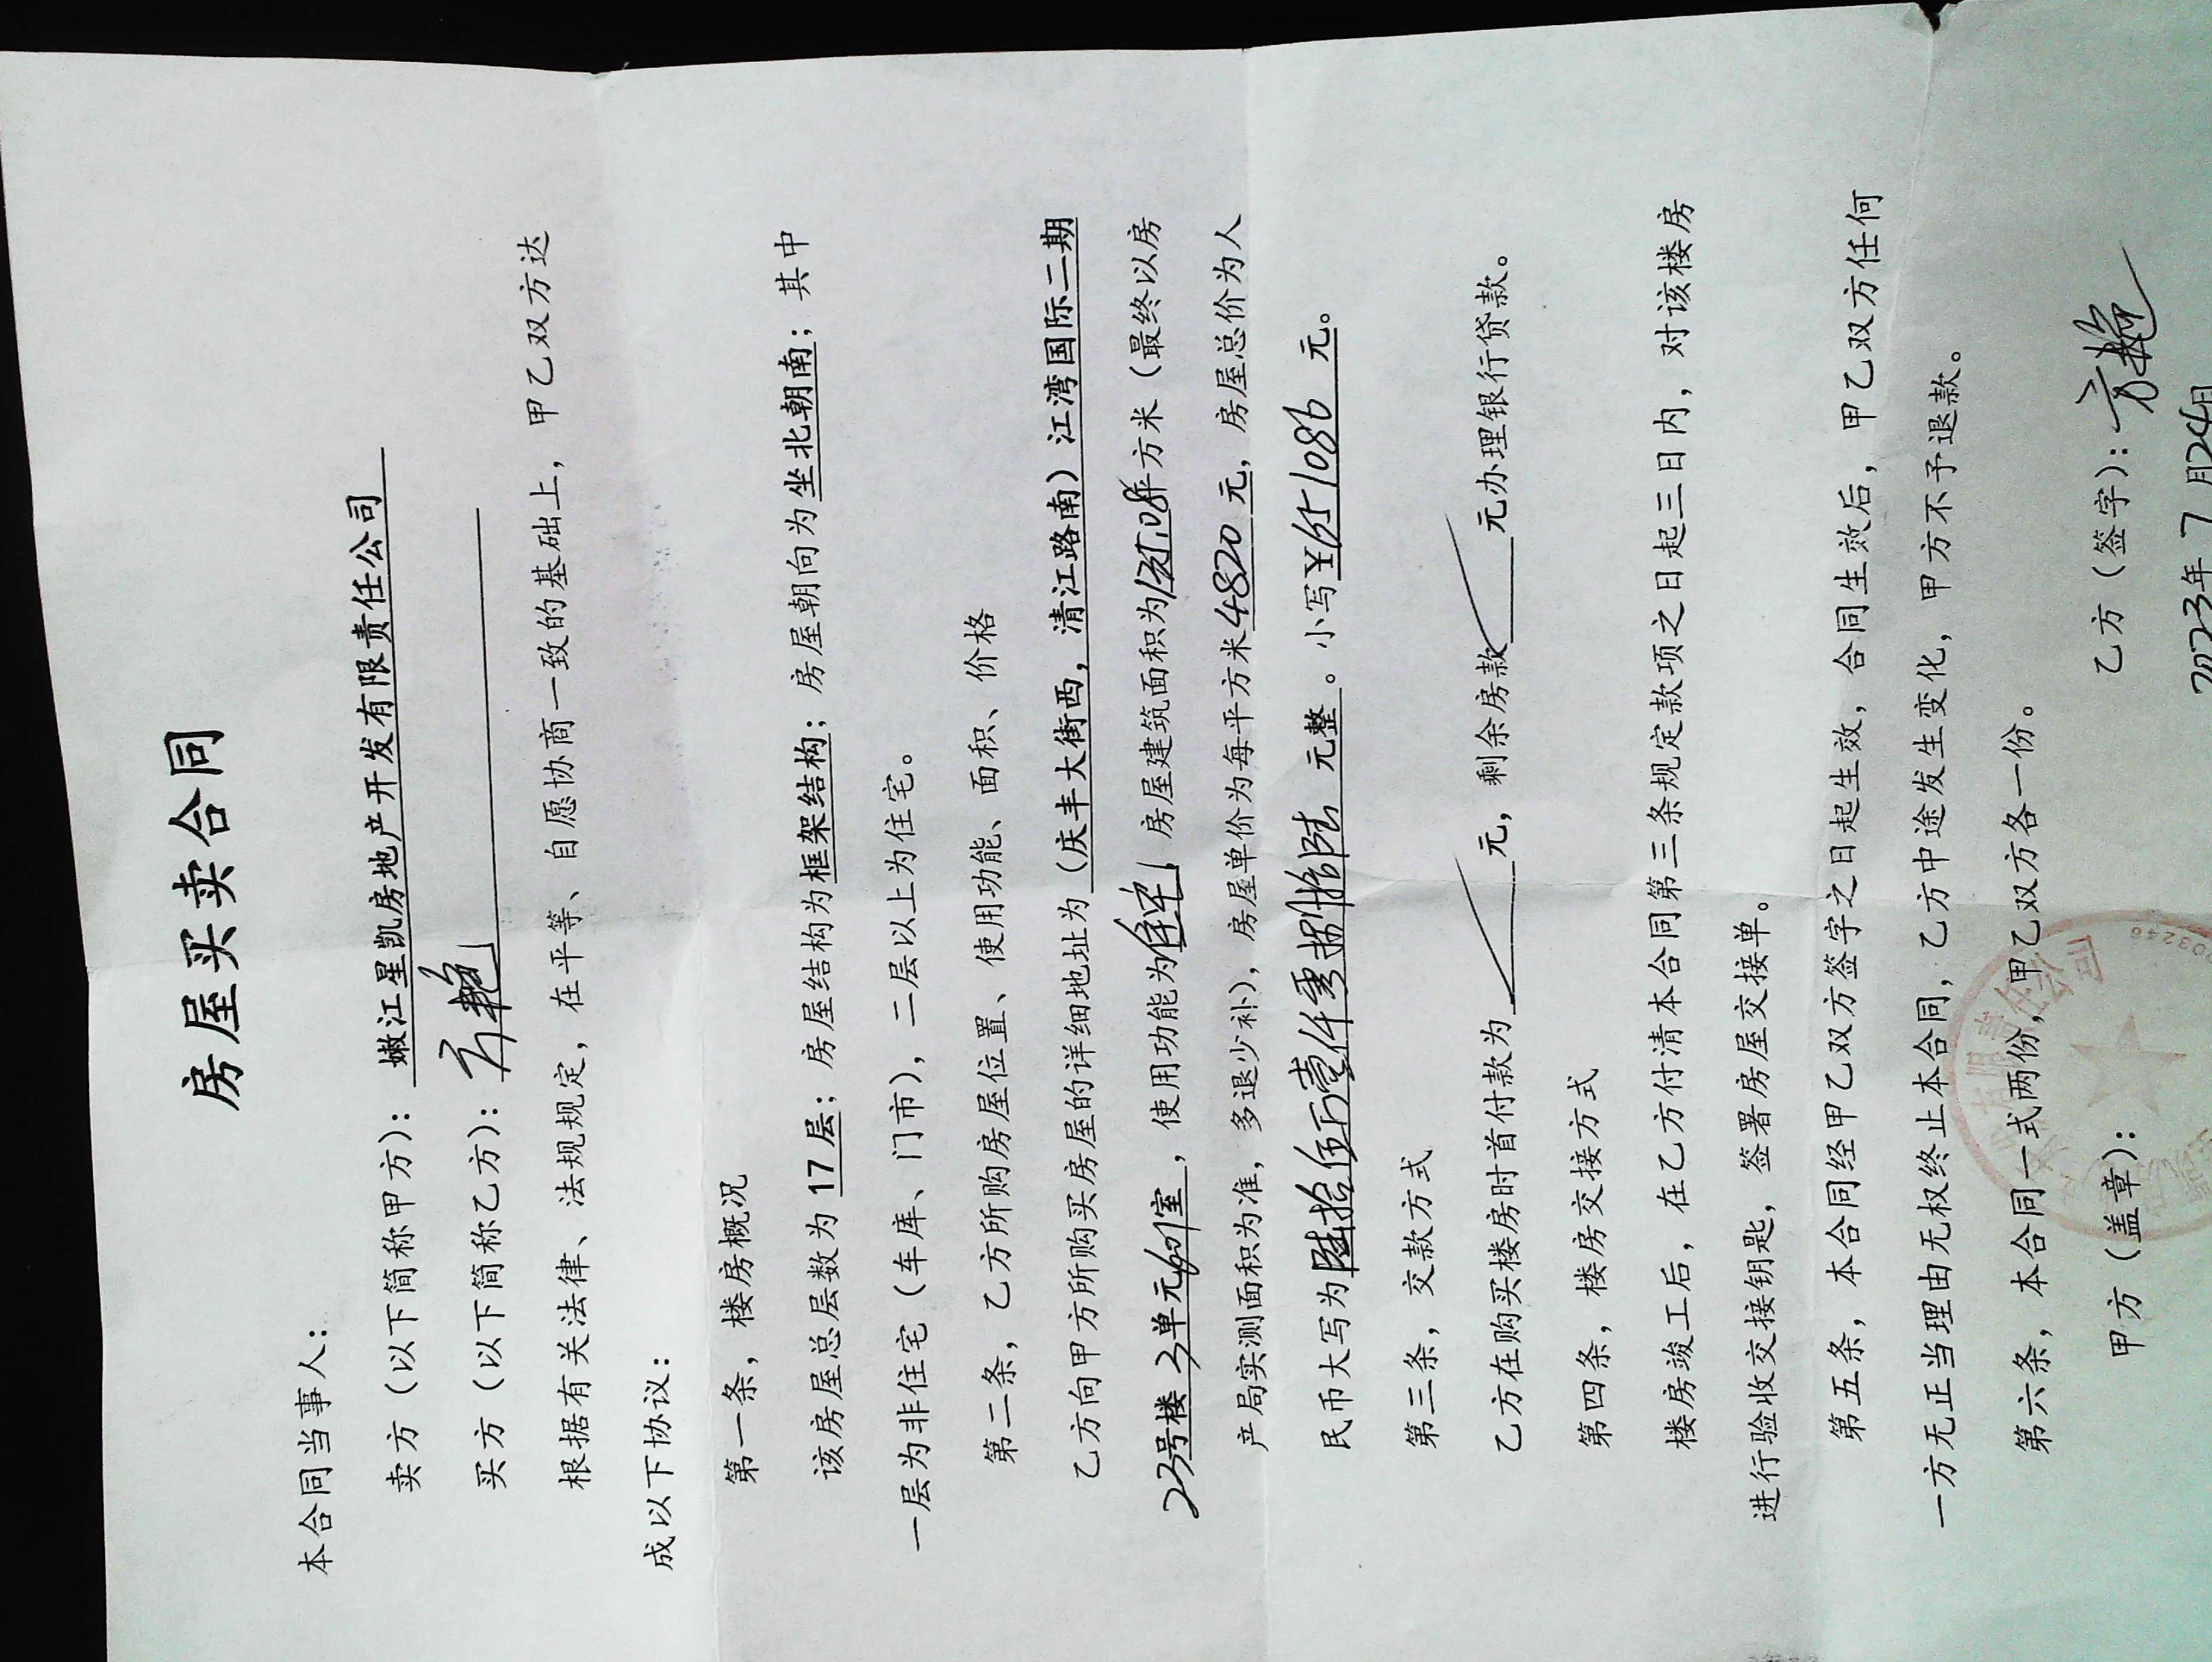 房屋买卖合同
本合同当事人：
卖方（以下简称甲方）：嫩江星凯房地产开发有限责任公司
买方（以下简称乙方）：方艳
根据有关法律、法规规定，在平等、自愿协商一致的基础上，甲乙双方达
成以下协议：
第一条，楼房概况
该房屋总层数为 17 层；房屋结构为框架结构；房屋朝向为坐北朝南；其中
一层为非住宅（车库、门市），二层以上为住宅。
第二条，乙方所购房屋位置、使用功能、面积、价格
乙方向甲方所购买房屋的详细地址为（庆丰大街西，清江路南）江湾国际二期
23号楼 3单元601室，使用功能为住宅，房屋建筑面积为135.08平方米（最终以房
产局实测面积为准，多退少补），房屋单价为每平方米4820元，房屋总价为人
民币大写为陆拾伍万壹仟零捌拾陆 元整。小写¥651086 元。
第三条，交款方式
乙方在购买楼房时首付款为 元，剩余房款 元办理银行贷款。
第四条，楼房交接方式
楼房竣工后，在乙方付清本合同第三条规定款项之日起三日内，对该楼房
进行验收交接钥匙，签署房屋交接单。
第五条，本合同经甲乙双方签字之日起生效，合同生效后，甲乙双方任何
一方无正当理由无权终止本合同，乙方中途发生变化，甲方不予退款。
第六条，本合同一式两份，甲乙双方各一份。
甲方（盖章）： 乙方（签字）：方艳
2023年7月24日